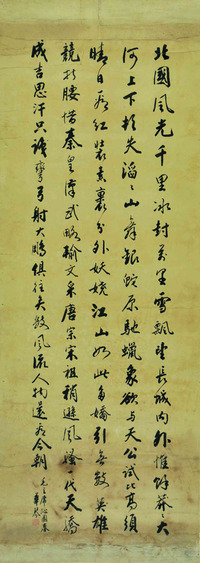 北國風光千里冰封万里雪飄望長城內外惟餘莽〻大
河上下頓失滔〻山舞銀蛇原馳蠟象欲與天公試比高須
晴日看紅裝素裹分外妖嬈江山如此多嬌引無數英雄
競折腰惜秦皇漢武略輸文采唐宗宋祖稍遜風騷一代天驕
成吉思汗只識彎弓射大鵰俱往矣數風流人物還看今朝
毛主席沁園春